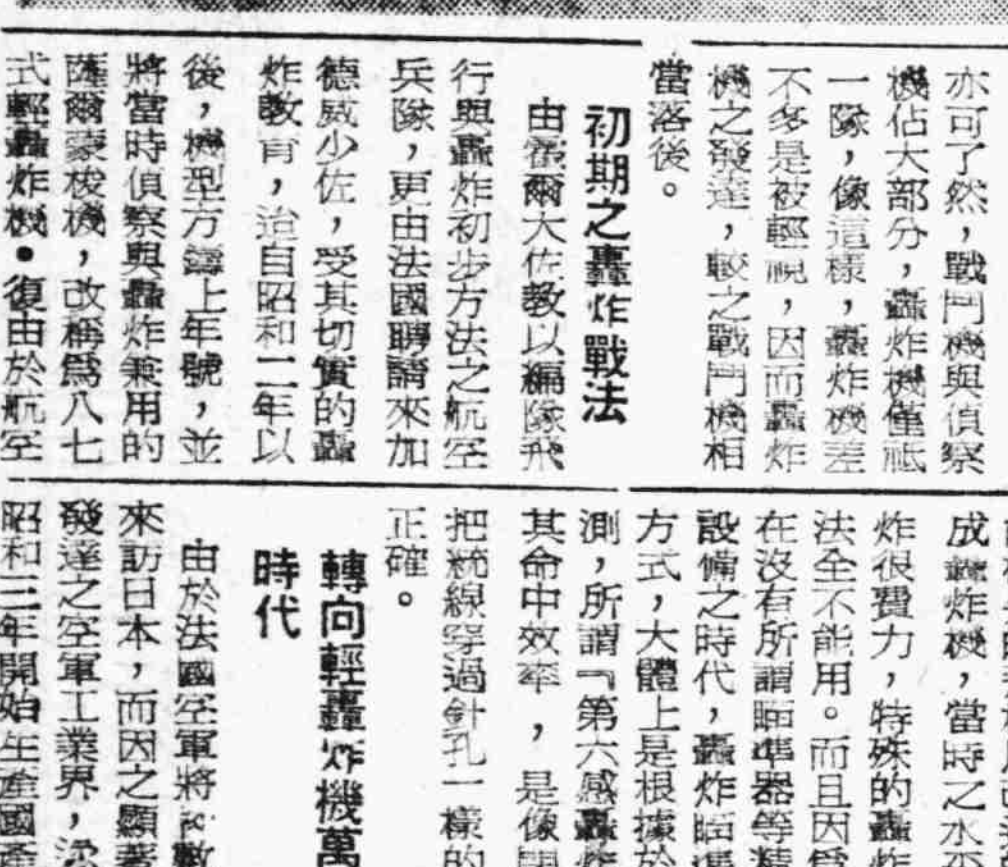 亦可了然，戰鬥機與偵察
機佔大部分，轟炸機僅祇
一隊，像這樣，轟炸機差
不多是被輕視，因而轟炸
機之發達，較之戰鬥機相
當落後。
初期之轟炸戰法
由霍爾大佐教以編隊飛
行與轟炸初步方法之航空
兵隊，更由法國聘請來加
德威少佐，受其切實的轟
炸教育，迨自昭和二年以
後，機型方鑄上年號，並
將當時偵察與轟炸兼用的
薩爾蒙梭機，改稱爲八七
式輕轟炸機・復由於航空
成轟炸機，當時之水
炸很費力，特殊的轟炸
法全不能用。而且因爲
在沒有所謂瞄準器等精
設備之時代，轟炸瞄準
方式，大體上是根據於
測，所謂『第六感轟炸
其命中效率，是像
把統線穿過針孔一樣的
正確。
轉向輕轟炸機萬
時代
由於法國空軍將 數
來訪日本，而因之顯著
發達之空軍工業界，
昭和三年開始生產國產